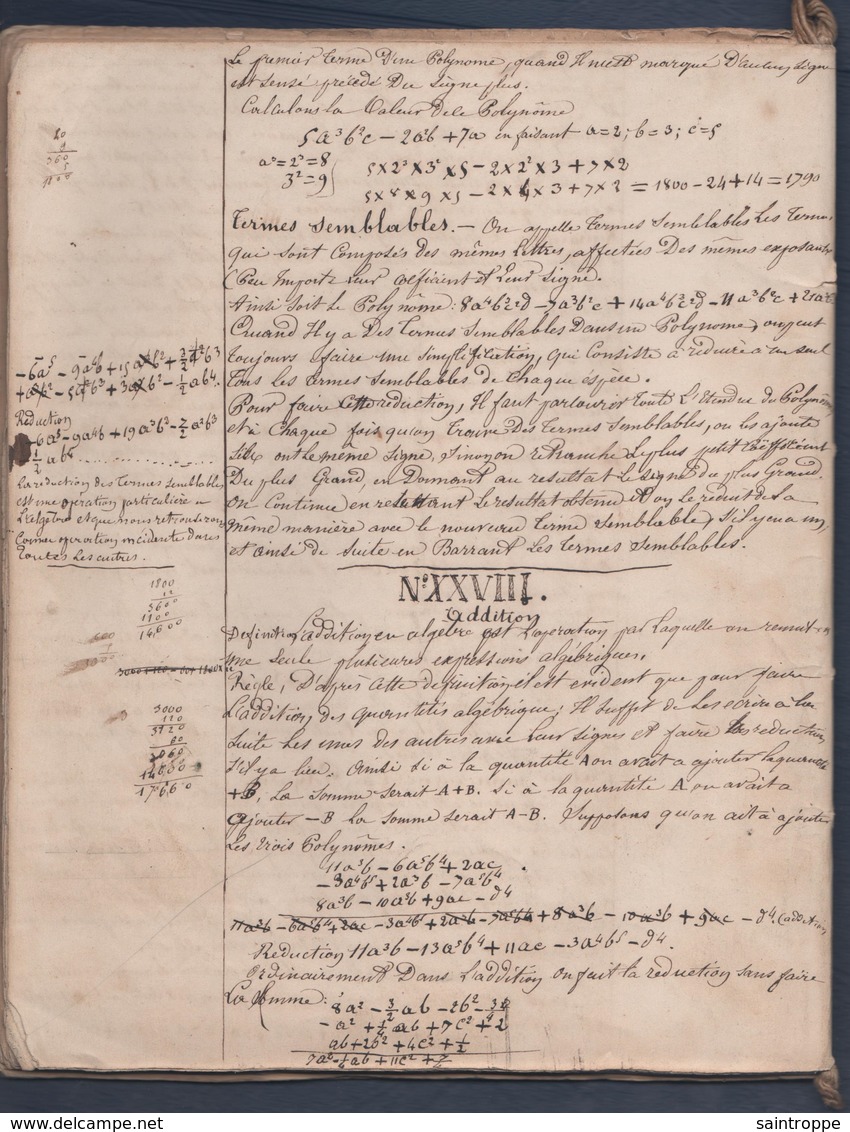 Le premier terme d'un Polynome, quand Il n'est marqué D'aucun Signe
est sensé précédé Du Signe plus.
Calculons la Valeur De le Polynôme
5a³b²c − 2a²b + 7a en faisant a=2; b=3; c=5
a³=2³=8
3²=9
5×2³×3²×5 − 2×2²×3 + 7×2
5×8×9×5 − 2×4×3 + 7×2 = 1800 − 24 + 14 = 1790
Termes Semblables. — On appelle Termes Semblables Les Termes
qui sont Composés des mêmes Lettres, affectées Des mêmes exposants
(Peu Importe Leur coeficient et Leur Signe.
Ainsi soit Le Polynôme: 8a⁴b³c²d − 7a³b²c + 14a⁴b³c²d − 11a³b²c +
Quand Il y a Des Termes Semblables Dans un Polynome, on peut
toujours faire une Simplification, qui Consiste à réduire à un seul
Tous les termes Semblables de Chaque éspèce.
Pour faire Cette reduction, Il faut parcourir toute L'Etendue du Polynôme
et à Chaque fois qu'on Trouve Des Termes Semblables, on les ajoute
s'ils ont le même Signe, Sinon on retranche Le plus petit Coefficient
Du plus Grand, en Donnant au resultat le Signe du plus Grand.
On Continue en le resultat obtenu et on le reduit de la
même manière avec le nouveau Terme Semblable, s'il y en a un,
et ainsi de Suite en Barrant Les Termes Semblables.
20
9
360
5
1800
−6a⁵ − 9a⁴b + 15
Reduction
−6a⁵ − 9a⁴b + 19a³b² − 7/2 a²b³
1/2 ab⁴
La reduction des Termes semblables
est une opération particulière a
L'algèbre et que nous retrouverons
Comme operation incidente dans
toutes Les autres.
N° XXVIII.
Addition
Definition L'addition en algèbre est L'operation par laquelle on reunit en
une Seule plusieures expressions algébriques.
Règle, D'après Cette definition il est evident que pour faire
L'addition, des quantités algébrique; Il suffit de Les ecrire à la
suite Les unes des autres avec Leur Signes et faire la reduction,
s'il y a lieu. Ainsi si à la quantité A on avait a ajouter la quantité
+B, La Somme serait A+B. Si à la quantité A on avait a
ajouter −B La Somme serait A−B. Supposons qu'on ait à ajouter
Les trois Polynômes.
11a³b − 6a⁵b⁴ + 2ac
−3a⁴b⁵ + 2a³b − 7a⁵b⁴
8a³b − 10a³b + 9ac − d⁴
11a³b − 6a⁵b⁴ + 2ac − 3a⁴b⁵ + 2a³b − 7a⁵b⁴ + 8a³b − 10a³b + 9ac − d⁴. (addition
Reduction 11a³b − 13a⁵b⁴ + 11ac − 3a⁴b⁵ − d⁴.
Ordinairement Dans L'addition on fait la reduction sans faire
La Somme:
8a² − 3/2 ab − 2b²
−a² + 1/2 ab + 7c²
ab + 2b² + 4c² + 1/2
1800
12
3600
1800
3000
120
3120
60
3060
14600
17660
saintroppe